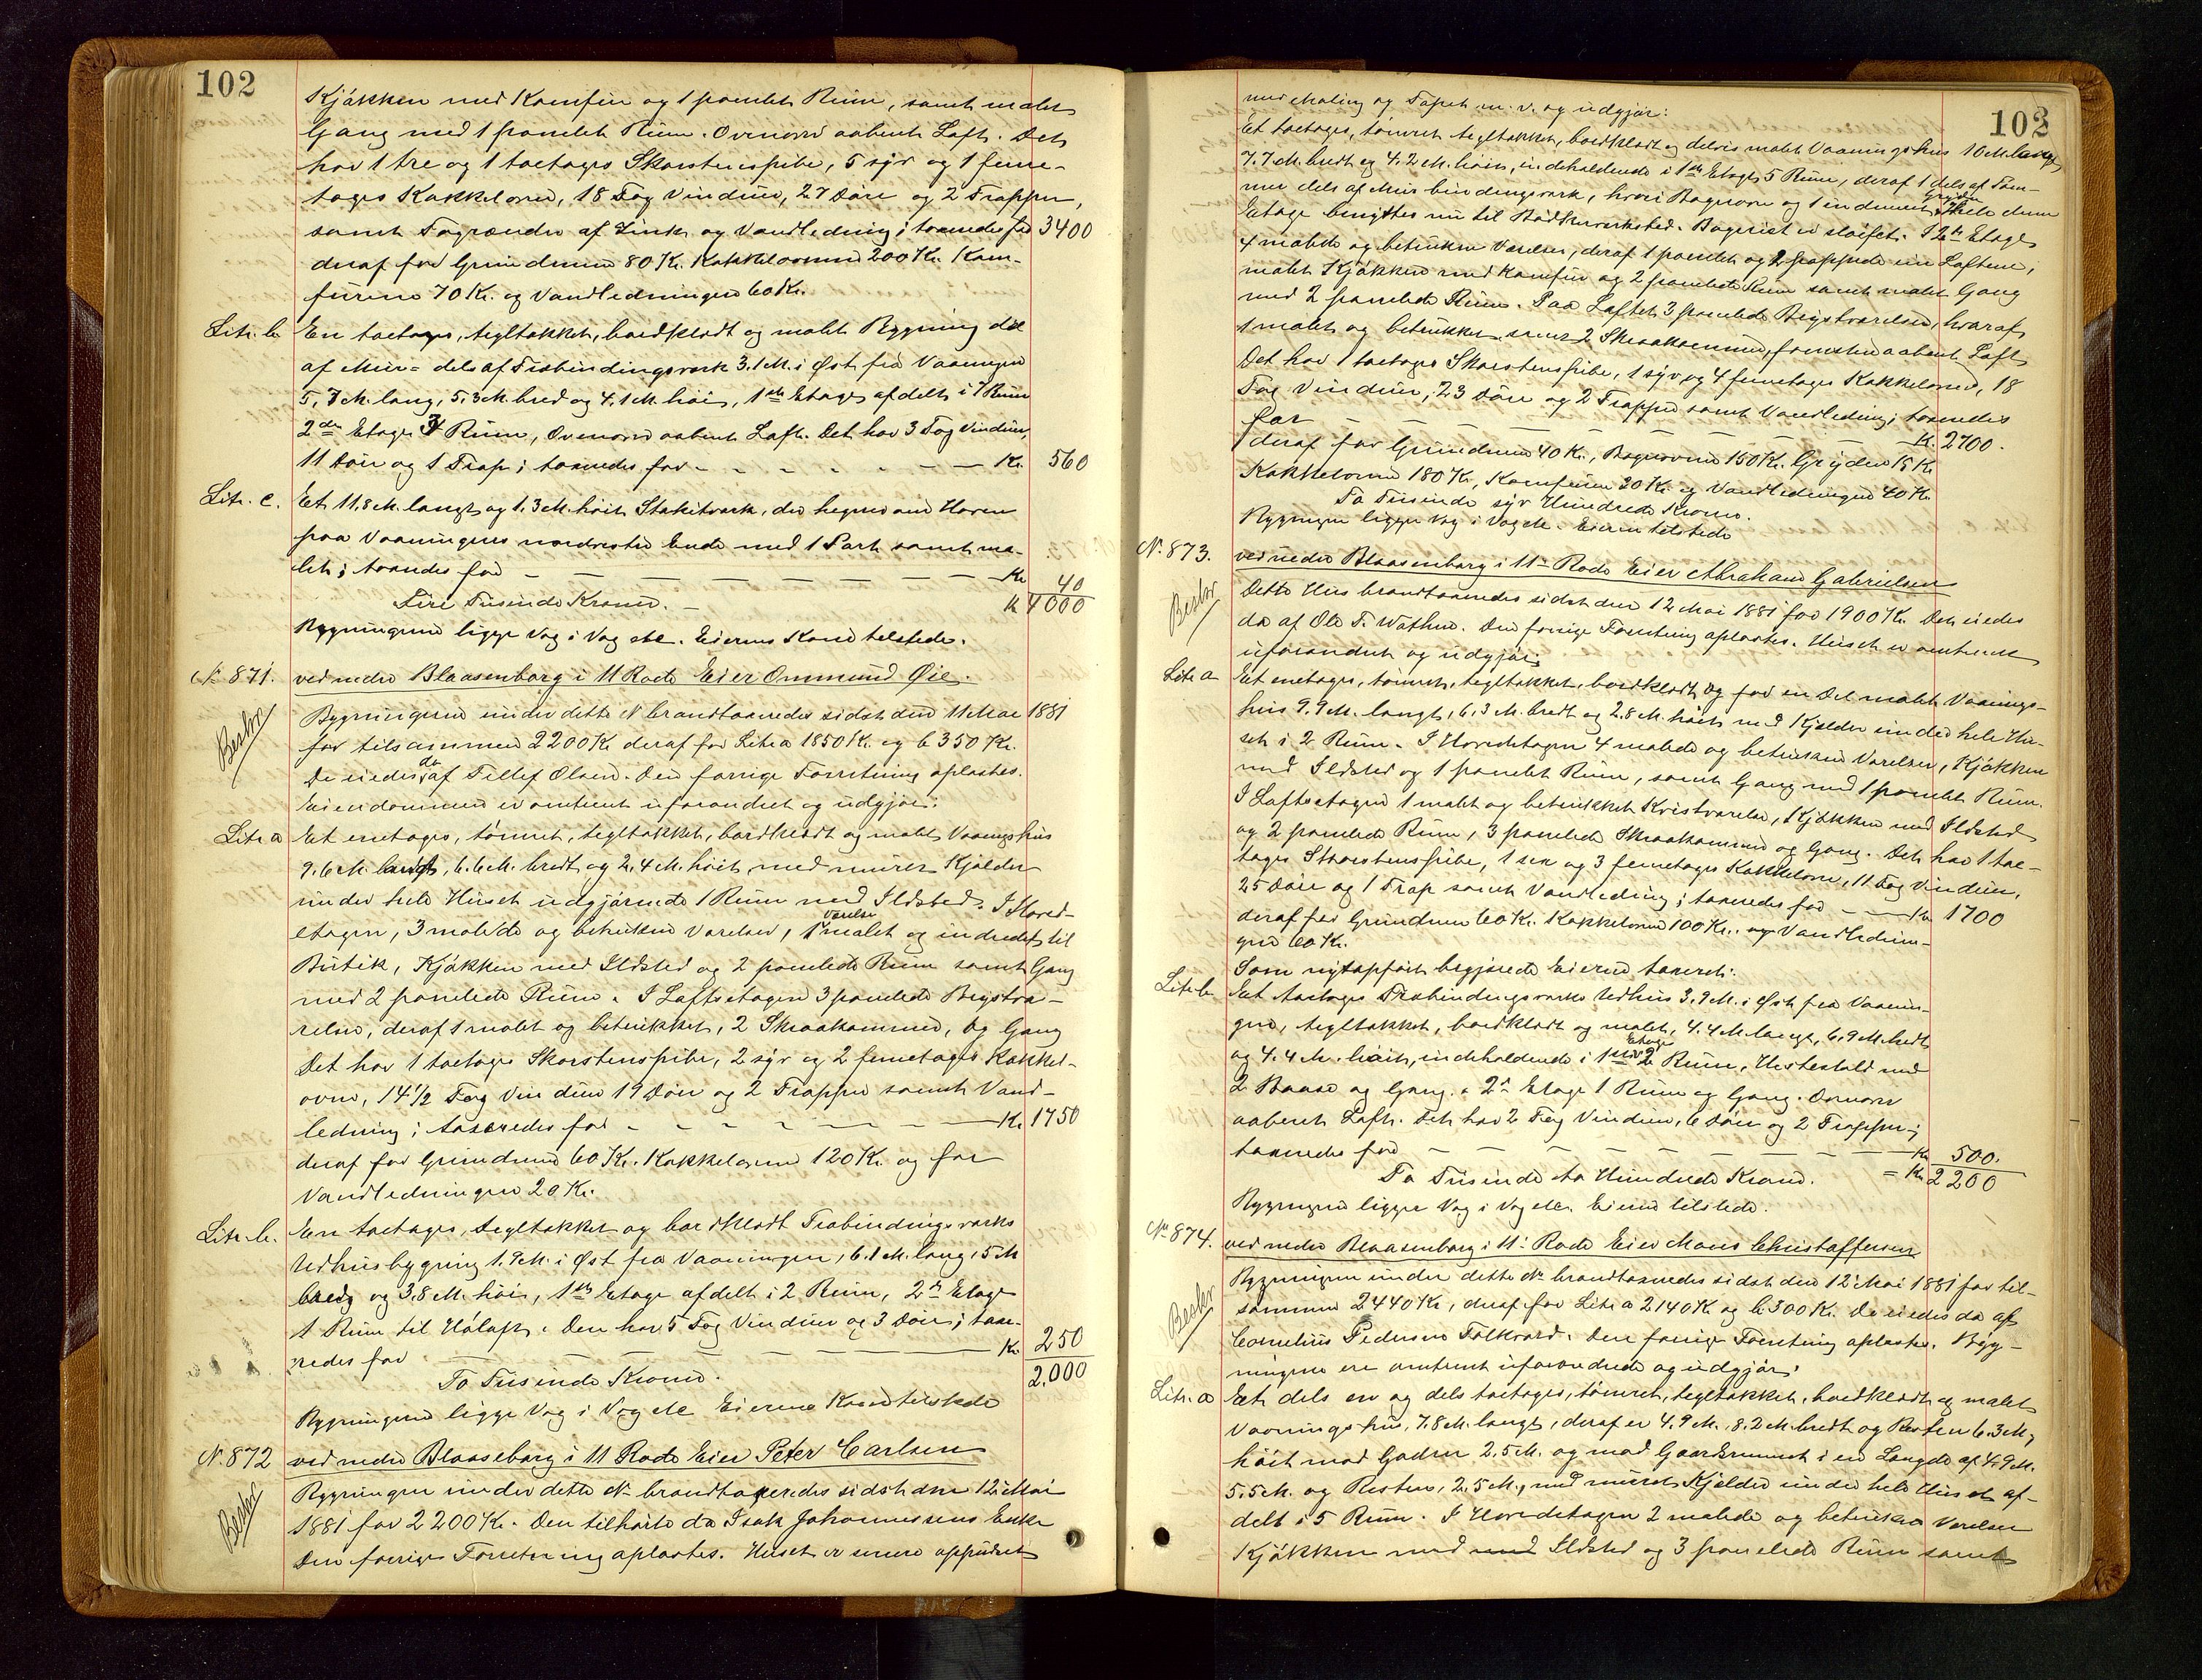 102
Kjøkken med Komfur og 1 panelet Rum, samt malet
Gang med 1 panelet Rum. Ovenover aabent Loft. Det
har 1 tre og 1 toetages Skorstenspibe, 5 syv og 1 feme-
tages Kakkelovne, 18 Fag Vinduer, 27 Døre og 2 Trapper,
samt Tagrender af Zink og Vandledning; taxeredes for 3400
deraf for Grundmuren 80 Kr. Kakkelovnene 200 Kr. Kom-
furene 70 Kr. og Vandledningen 60 Kr.
Litr. b. En toetages, tegltækket, bordklædt og malet Bygning del
af Mur- dels af Træbindingsværk 3.1 M. i Øst fra Vaaningen
5,7 M. lang, 5.3 M. bred og 4.1 M. høi, 1ste Etage afdelt i 7 Rum
2den Etage 3 Rum, Ovenover aabent Loft. Det har 3 Fag Vinduer,
11 Døre og 1 Trap; taxeredes for - - - Kr. 560
Litr. c. Et 11,8 M. langt og 1.3 M. høit Stakitværk, der hegner om Haven
paa Vaaningens nordvestre Ende med 1 Port samt ma-
let; taxeredes for — — — Kr. 40
Fire Tusinde Kroner. — Kr 4000
Bygningerne ligge Vag i Vag etc. Eierens Kone tilstede.
№ 871. ved nedre Blaasenborg i 11 Rode Eier Ommund Øie.
Besber
Bygningerne under dette № brandtaxeredes sidst den 11 Mai 1881
for tilsammen 2200 Kr. deraf for Litr a 1850 Kr. og b 350 Kr.
De eiedes da af Tellef Olsen. Den forrige Forretning oplæstes.
Eiendommen er omtrent uforandret og udgjør:
Litr a Et enetages, tømret, tegltækket, bordklædt og malet Vaaningshus
9.6 M. langt, 6.6 M. bredt og 2.4 M. høit, med muret Kjælder
under hele Huset udgjørende 1 Rum med Ildsted. I Hoved-
etagen, 3 malede og betrukne Værelser, 1 Værelse malet og indredet til
Butik, Kjøkken med Ildsted og 2 panelede Rum samt Gang
med 2 panelede Rum. I Loftsetagen 3 panelede Brystvæ-
relser, deraf 1 malet og betrukket, 2 Skraakammere, og Gang
Det har 1 toetages Skorstenspibe, 2 syv og 2 femetages Kakkel-
ovne, 14½ Fag Vinduer 19 Døre og 2 Trapper samt Vand-
ledning; taxeredes for - - - Kr. 1750
deraf for Grundmuren 60 Kr. Kakkelovnene 120 Kr. og for
Vandledningen 20 Kr.
Litr. b. En toetages, tegltækket og bordklædt Træbindingsværks
Udhusbygning 1.9 M. i Øst fra Vaaningen, 6.1 M. lang, 5 M
bred og 3.8 M. høi, 1ste Etage afdelt i 2 Rum, 2den Etage
1 Rum til Høloft. Den har 5 Fag Vinduer og 3 Døre; taxe-
redes for — — — Kr. 250
To Tusinde Kroner. 2,000
Bygningerne ligge Vag i Vag etc Eierens Kone tilstede
№. 872 ved nedre Blaaseborg i 11 Rode Eier Peter Carlsen
Besber
Bygningen under dette № brandtaxeredes sidst den 12 Mai
1881 for 2200 Kr. Den tilhørte da Isak Johannessens Enke
Den forrige Forretning oplæstes. Huset er senere oppudset
102
med Maling og Tapet m. v. og udgjør:
Et toetages, tømret tegltækket, bordklædt og delvis malet Vaaningshus 10 M. langt
7.7 M. bredt og 4.2 M. høit, indeholdende i 1ste Etage 5 Rum, deraf 1 dels af Tøm-
mer dels af Mur bindingsværk, hvori Bagerovn og 1 indmuret Gryde. Hele denne
Etage benyttes nu til Bødkerværksted. Bageriet er sløifet. I 2den Etage
4 malede og betrukne Værelser, deraf 1 panelet og 2 gipsede under Loftene,
malet Kjøkken med Komfur og 2 panelede Rum samt malet Gang
med 2 panelede Rum. Paa Loftet 3 panelede Brystværelser, hvoraf
1 malet og betrukket, samt 2 Skraakammere, forresten aabent Loft
Det har 1 toetages Skorstenspibe, 1 syv og 4 femetages Kakkelovne, 18
Fag Vinduer, 23 Døre og 2 Trapper samt Vandledning; taxeredes
for — — — Kr. 2700.
deraf for Grundmuren 40 Kr., Bagerovnen 150 Kr. Gryden 15 Kr
Kakkelovnene 180 Kr, Komfuren 30 Kr. og Vandledningen 40 Kr.
To Tusinde syv Hundrede Kroner.
Bygningen ligger Vag i Vag etc. Eieren tilstede
№. 873. ved nedre Blaasenborg i 11te Rode Eier Abraham Gabrielsen
Besber
Dette Hus brandtaxeredes sidst den 12 Mai 1881 for 1900 Kr. Det eiedes
da af Ole T. Wathne. Den forrige Forretning oplæstes. Huset er omtrent
uforandret og udgjør:
Litr a Et enetages, tømret, tegltækket, bordklædt og for en Del malet Vaanings-
hus 9.9 M. langt, 6.3 M. bredt og 2.8 M. høit med Kjælder under hele Hu-
set i 2 Rum. I Hovedetagen 4 malede og betrukne Værelser, Kjøkken
med Ildsted og 1 panelet Rum, samt Gang med 1 panelet Rum.
I Loftsetagen 1 malet og betrukket Kvistværelse, 1 Kjøkken med Ildsted
og 2 panelede Rum, 3 panelede Skraakammere og Gang. Det har 1 toe-
tages Skorstenspibe, 1 sex og 3 femetages Kakkelovne, 11 Fag Vinduer,
25 Døre og 1 Trap samt Vandledning; taxeredes for — — Kr 1700
deraf for Grundmuren 60 Kr. Kakkelovnene 100 Kr. og Vandlednin-
gen 60 Kr.
Som nyopført begjærede Eieren taxeret:
Litr b Et toetages Træbindingsværks Udhus 3.9 M. i Øst fra Vaanin-
gen, tegltækket, bordklædt og malet, 4.4 M. langt, 6.9 M. bredt
og 4.4 M. høit, indeholdende i 1ste Etage 2 Rum, Hestestald med
2 Baase og Gang. 2den Etage 1 Rum og Gang. Ovenover
aabent Loft. Det har 2 Fag Vinduer, 6 Døre og 2 Trapper;
taxeredes for — — — Kr 500.
To Tusinde to Hundrede Kroner. = Kr 2200
Bygningerne ligger Vag i Vag etc. Eieren tilstede.
№ 874. ved nedre Blaasenborg i 11te Rode Eier Mons Christoffersen
Besber
Bygningerne under dette № brandtaxeredes sidst den 12 Mai 1881 for til-
sammen 2440 Kr, deraf for Litr a 2140 Kr og b 300 Kr. De eiedes da af
Cornelius Pedersen Falkvard. Den forrige Forretning oplæstes. Byg-
ningerne ere omtrent uforandrede og udgjør:
Litr. a Et dels en og dels toetages, tømret, tegltækket, bordklædt og malet
Vaaningshus, 7.8 M. langt, deraf er 4.9 M. 8.2 M. bredt og Resten 6.3 M,
høit mod Gaden 2.5 M. og mod Gaardsrummet i en Længde af 4.9 M.
5.5 M. og Resten, 2.5 M., med muret Kjælder under hele Huset af-
delt i 5 Rum. I Hovedetagen 2 malede og betrukne Værelser
Kjøkken med med Ildsted og 3 panelede Rum samt